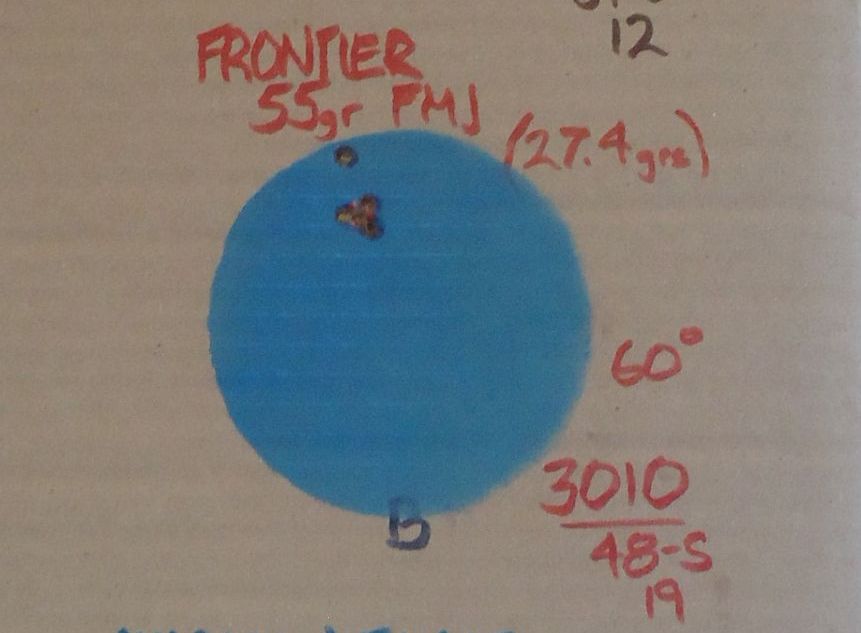 12
FRONTIER
55gr FMJ
(27.4 grs)
60°
3010
48-S
19
B